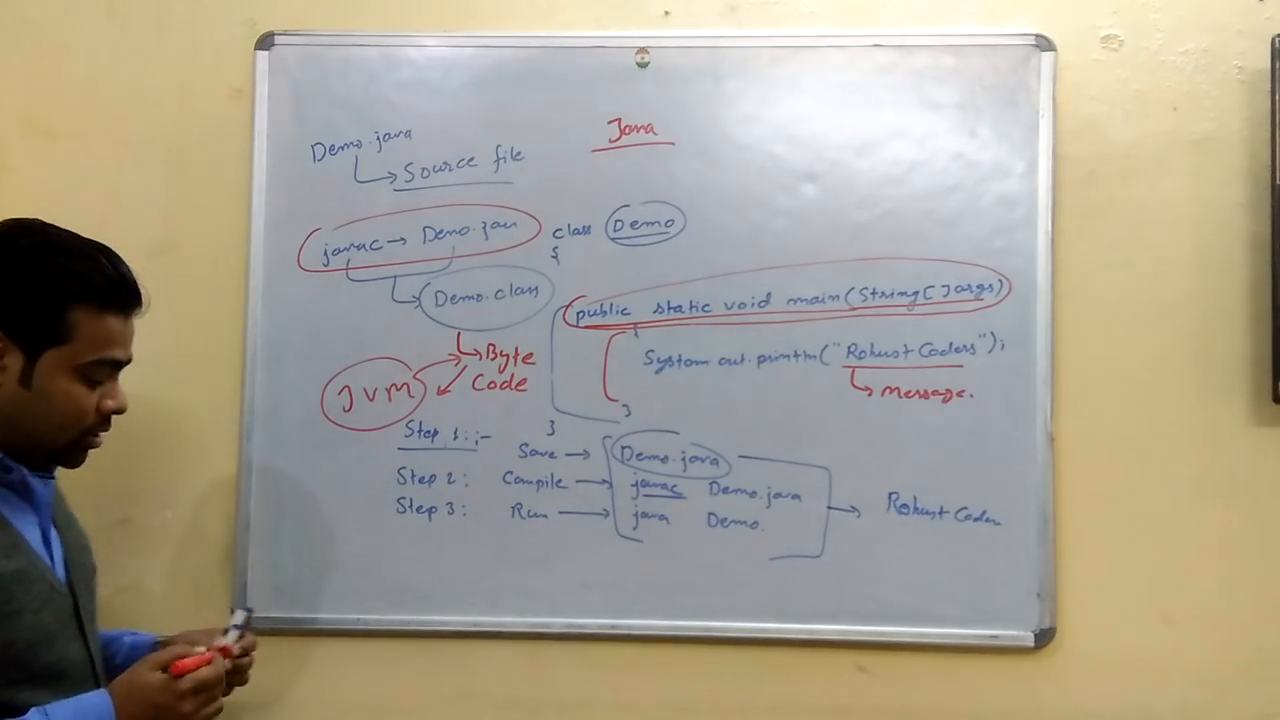 Java
Demo.java
Source file
javac → Demo.java
Demo.class
Byte
Code
JVM
class Demo
{
public static void main(String[]args)
{
System out.println("Robust Coders");
Message.
}
}
Step 1:;- Save → Demo.java
Step 2: Compile → javac Demo.java
Step 3: Run → java Demo.
→ Robust Coder